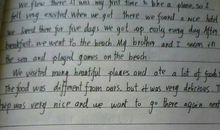 We flew there. It was my first time to take a plane, so I
felt very excited when we got there. we found a nice hotel
we stayed there for five days. we got up early every day. After
breakfast, we went to the beach. My brother and I swam in
the sea and played games on the beach.
We visited many beautiful places and ate a lot of foods
The food was different from ours. but it was very delicious. The
trip was very nice and we want to go there again next